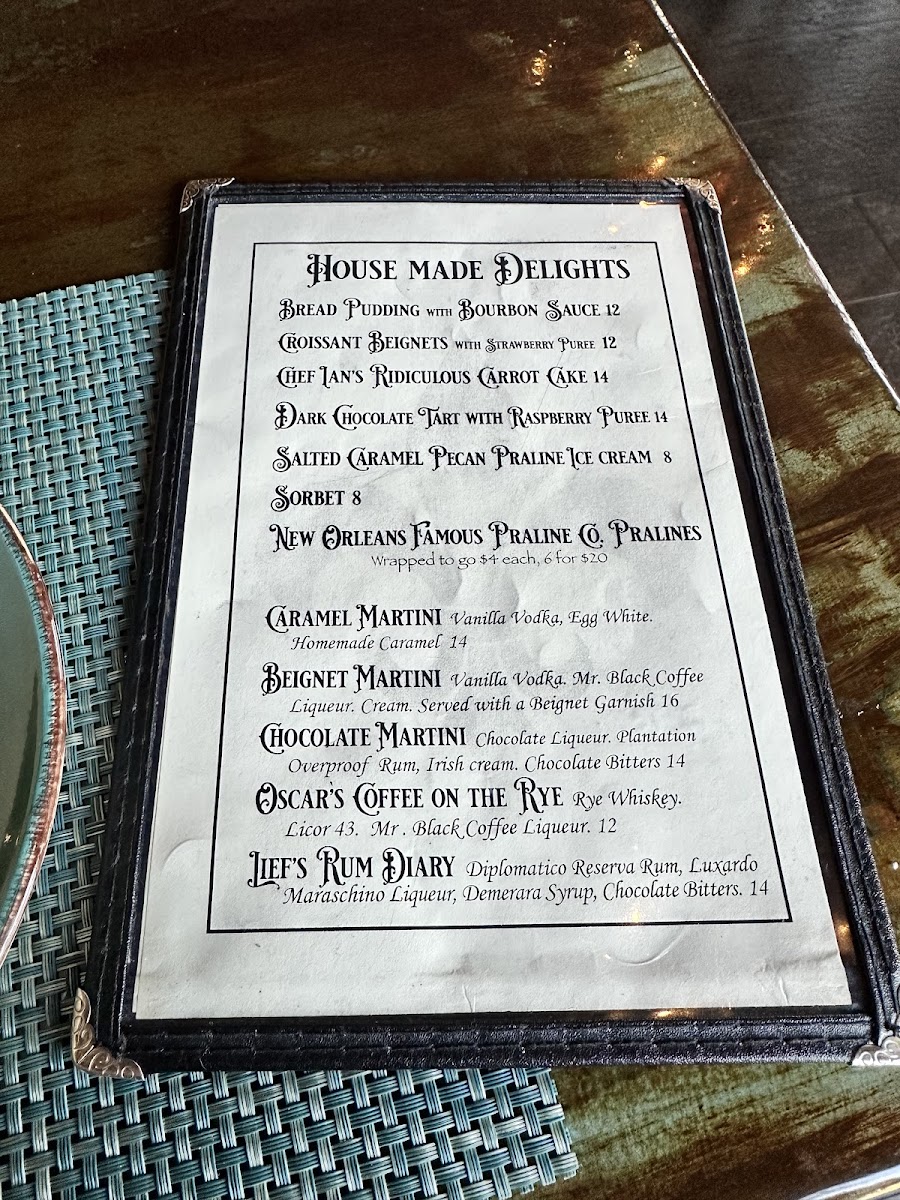 House made Delights
Bread Pudding with Bourbon Sauce 12
Croissant Beignets with Strawberry Puree 12
Chef Ian's Ridiculous Carrot Cake 14
Dark Chocolate Tart with Raspberry Puree 14
Salted Caramel Pecan Praline Ice cream 8
Sorbet 8
New Orleans Famous Praline Co. Pralines
Wrapped to go $4 each, 6 for $20
Caramel Martini Vanilla Vodka, Egg White.
Homemade Caramel 14
Beignet Martini Vanilla Vodka. Mr. Black Coffee
Liqueur. Cream. Served with a Beignet Garnish 16
Chocolate Martini Chocolate Liqueur. Plantation
Overproof Rum, Irish cream. Chocolate Bitters 14
Oscar's Coffee on the Rye Rye Whiskey.
Licor 43. Mr. Black Coffee Liqueur. 12
Lief's Rum Diary Diplomatico Reserva Rum, Luxardo
Maraschino Liqueur, Demerara Syrup, Chocolate Bitters. 14